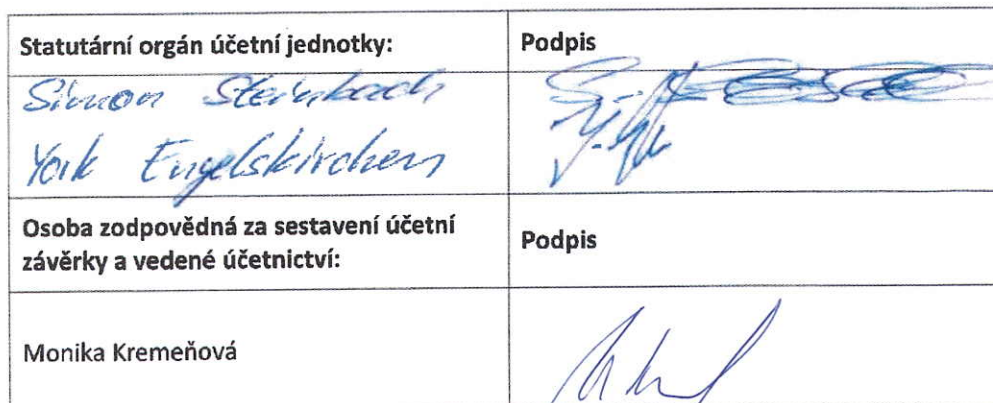 Statutární orgán účetní jednotky:
Podpis
Simon Steinbach
York Engelskirchen
Osoba zodpovědná za sestavení účetní
závěrky a vedené účetnictví:
Podpis
Monika Kremeňová